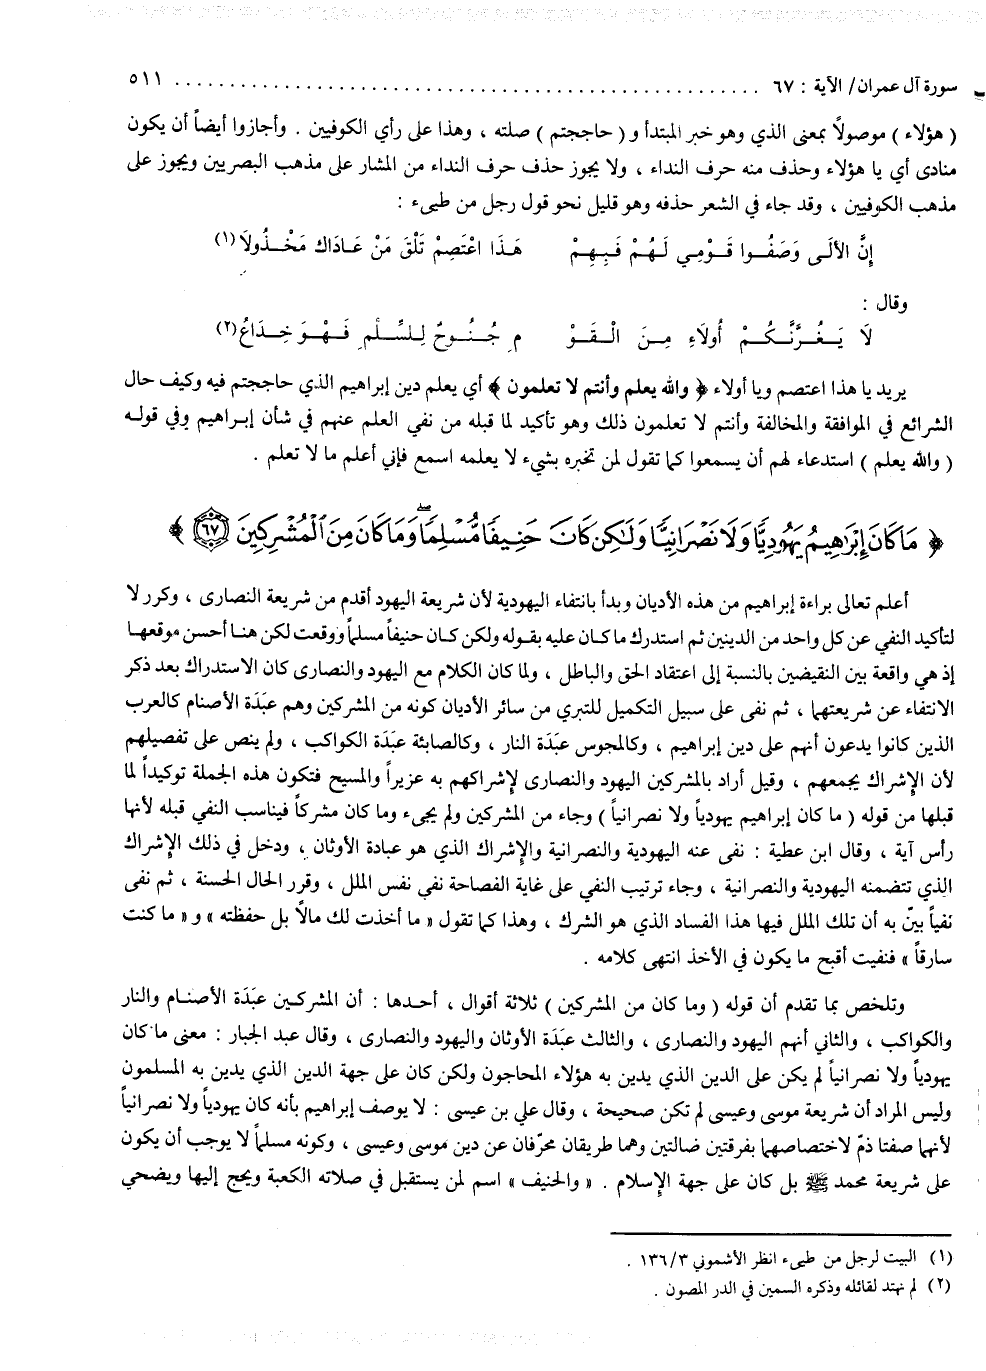 سورة آل عمران/ الآية : ٦٧ ................................................................ ٥١١
( هؤلاء ) موصولاً بمعنى الذي وهو خبر المبتدأ و ( حاججتم ) صلته ، وهذا على رأي الكوفيين . وأجازوا أيضاً أن يكون
منادى أي يا هؤلاء وحذف منه حرف النداء ، ولا يجوز حذف حرف النداء من المشار على مذهب البصريين ويجوز على
مذهب الكوفيين ، وقد جاء في الشعر حذفه وهو قليل نحو قول رجل من طيىء :
إِنَّ الأَلَى وَصَفُوا قَوْمِي لَهُمْ فَبِهِمْ هَذَا اعْتَصِمْ تَلْقَ مَنْ عَادَاكَ مَخْذُولَا(١)
وقال :
لَا يَغُرَّنَّكُمْ أُولَاءِ مِنَ الْقَوْ مِ جُنُوحٌ لِلسِّلْمِ فَهْوَ خِدَاعُ(٢)
يريد يا هذا اعتصم ويا أولاء ﴿ والله يعلم وأنتم لا تعلمون ﴾ أي يعلم دين إبراهيم الذي حاججتم فيه وكيف حال
الشرائع في الموافقة والمخالفة وأنتم لا تعلمون ذلك وهو تأكيد لما قبله من نفي العلم عنهم في شأن إبراهيم وفي قوله
( والله يعلم ) استدعاء لهم أن يسمعوا كما تقول لمن تخبره بشيء لا يعلمه اسمع فإني أعلم ما لا تعلم .
﴿ مَا كَانَ إِبْرَاهِيمُ يَهُودِيًّا وَلَا نَصْرَانِيًّا وَلَكِن كَانَ حَنِيفًا مُّسْلِمًا وَمَا كَانَ مِنَ الْمُشْرِكِينَ ٦٧ ﴾
أعلم تعالى براءة إبراهيم من هذه الأديان وبدأ بانتفاء اليهودية لأن شريعة اليهود أقدم من شريعة النصارى ، وكرر لا
لتأكيد النفي عن كل واحد من الدينين ثم استدرك ما كان عليه بقوله ولكن كان حنيفاً مسلماً ووقعت لكن هنا أحسن موقعها
إذ هي واقعة بين النقيضين بالنسبة إلى اعتقاد الحق والباطل ، ولما كان الكلام مع اليهود والنصارى كان الاستدراك بعد ذكر
الانتفاء عن شريعتهما ، ثم نفى على سبيل التكميل للتبري من سائر الأديان كونه من المشركين وهم عبَدَة الأصنام كالعرب
الذين كانوا يدعون أنهم على دين إبراهيم ، وكالمجوس عبَدَة النار ، وكالصابئة عبَدَة الكواكب ، ولم ينص على تفصيلهم
لأن الإِشراك يجمعهم ، وقيل أراد بالمشركين اليهود والنصارى لإِشراكهم به عزيراً والمسيح فتكون هذه الجملة توكيداً لما
قبلها من قوله ( ما كان إبراهيم يهودياً ولا نصرانياً ) وجاء من المشركين ولم يجىء وما كان مشركاً فيناسب النفي قبله لأنها
رأس آية ، وقال ابن عطية : نفى عنه اليهودية والنصرانية والإِشراك الذي هو عبادة الأوثان ، ودخل في ذلك الإِشراك
الذي تتضمنه اليهودية والنصرانية ، وجاء ترتيب النفي على غاية الفصاحة نفي نفس الملل ، وقرر الحال الحسنة ، ثم نفى
نفياً بيّن به أن تلك الملل فيها هذا الفساد الذي هو الشرك ، وهذا كما تقول « ما أخذت لك مالاً بل حفظته » و « ما كنت
سارقاً » فنفيت أقبح ما يكون في الأخذ انتهى كلامه .
وتلخص بما تقدم أن قوله ( وما كان من المشركين ) ثلاثة أقوال ، أحدها : أن المشركين عبَدَة الأصنام والنار
والكواكب ، والثاني أنهم اليهود والنصارى ، والثالث عبَدَة الأوثان واليهود والنصارى ، وقال عبد الجبار : معنى ما كان
يهودياً ولا نصرانياً لم يكن على الدين الذي يدين به هؤلاء المحاجون ولكن كان على جهة الدين الذي يدين به المسلمون
وليس المراد أن شريعة موسى وعيسى لم تكن صحيحة ، وقال علي بن عيسى : لا يوصف إبراهيم بأنه كان يهودياً ولا نصرانياً
لأنهما صفتا ذمّ لاختصاصهما بفرقتين ضالتين وهما طريقان محرّفان عن دين موسى وعيسى ، وكونه مسلماً لا يوجب أن يكون
على شريعة محمد ﷺ بل كان على جهة الإِسلام . « والحنيف » اسم لمن يستقبل في صلاته الكعبة ويحج إليها ويضحي
(١) البيت لرجل من طيىء انظر الأشموني ١٣٦/٣ .
(٢) لم نهتد لقائله وذكره السمين في الدر المصون .